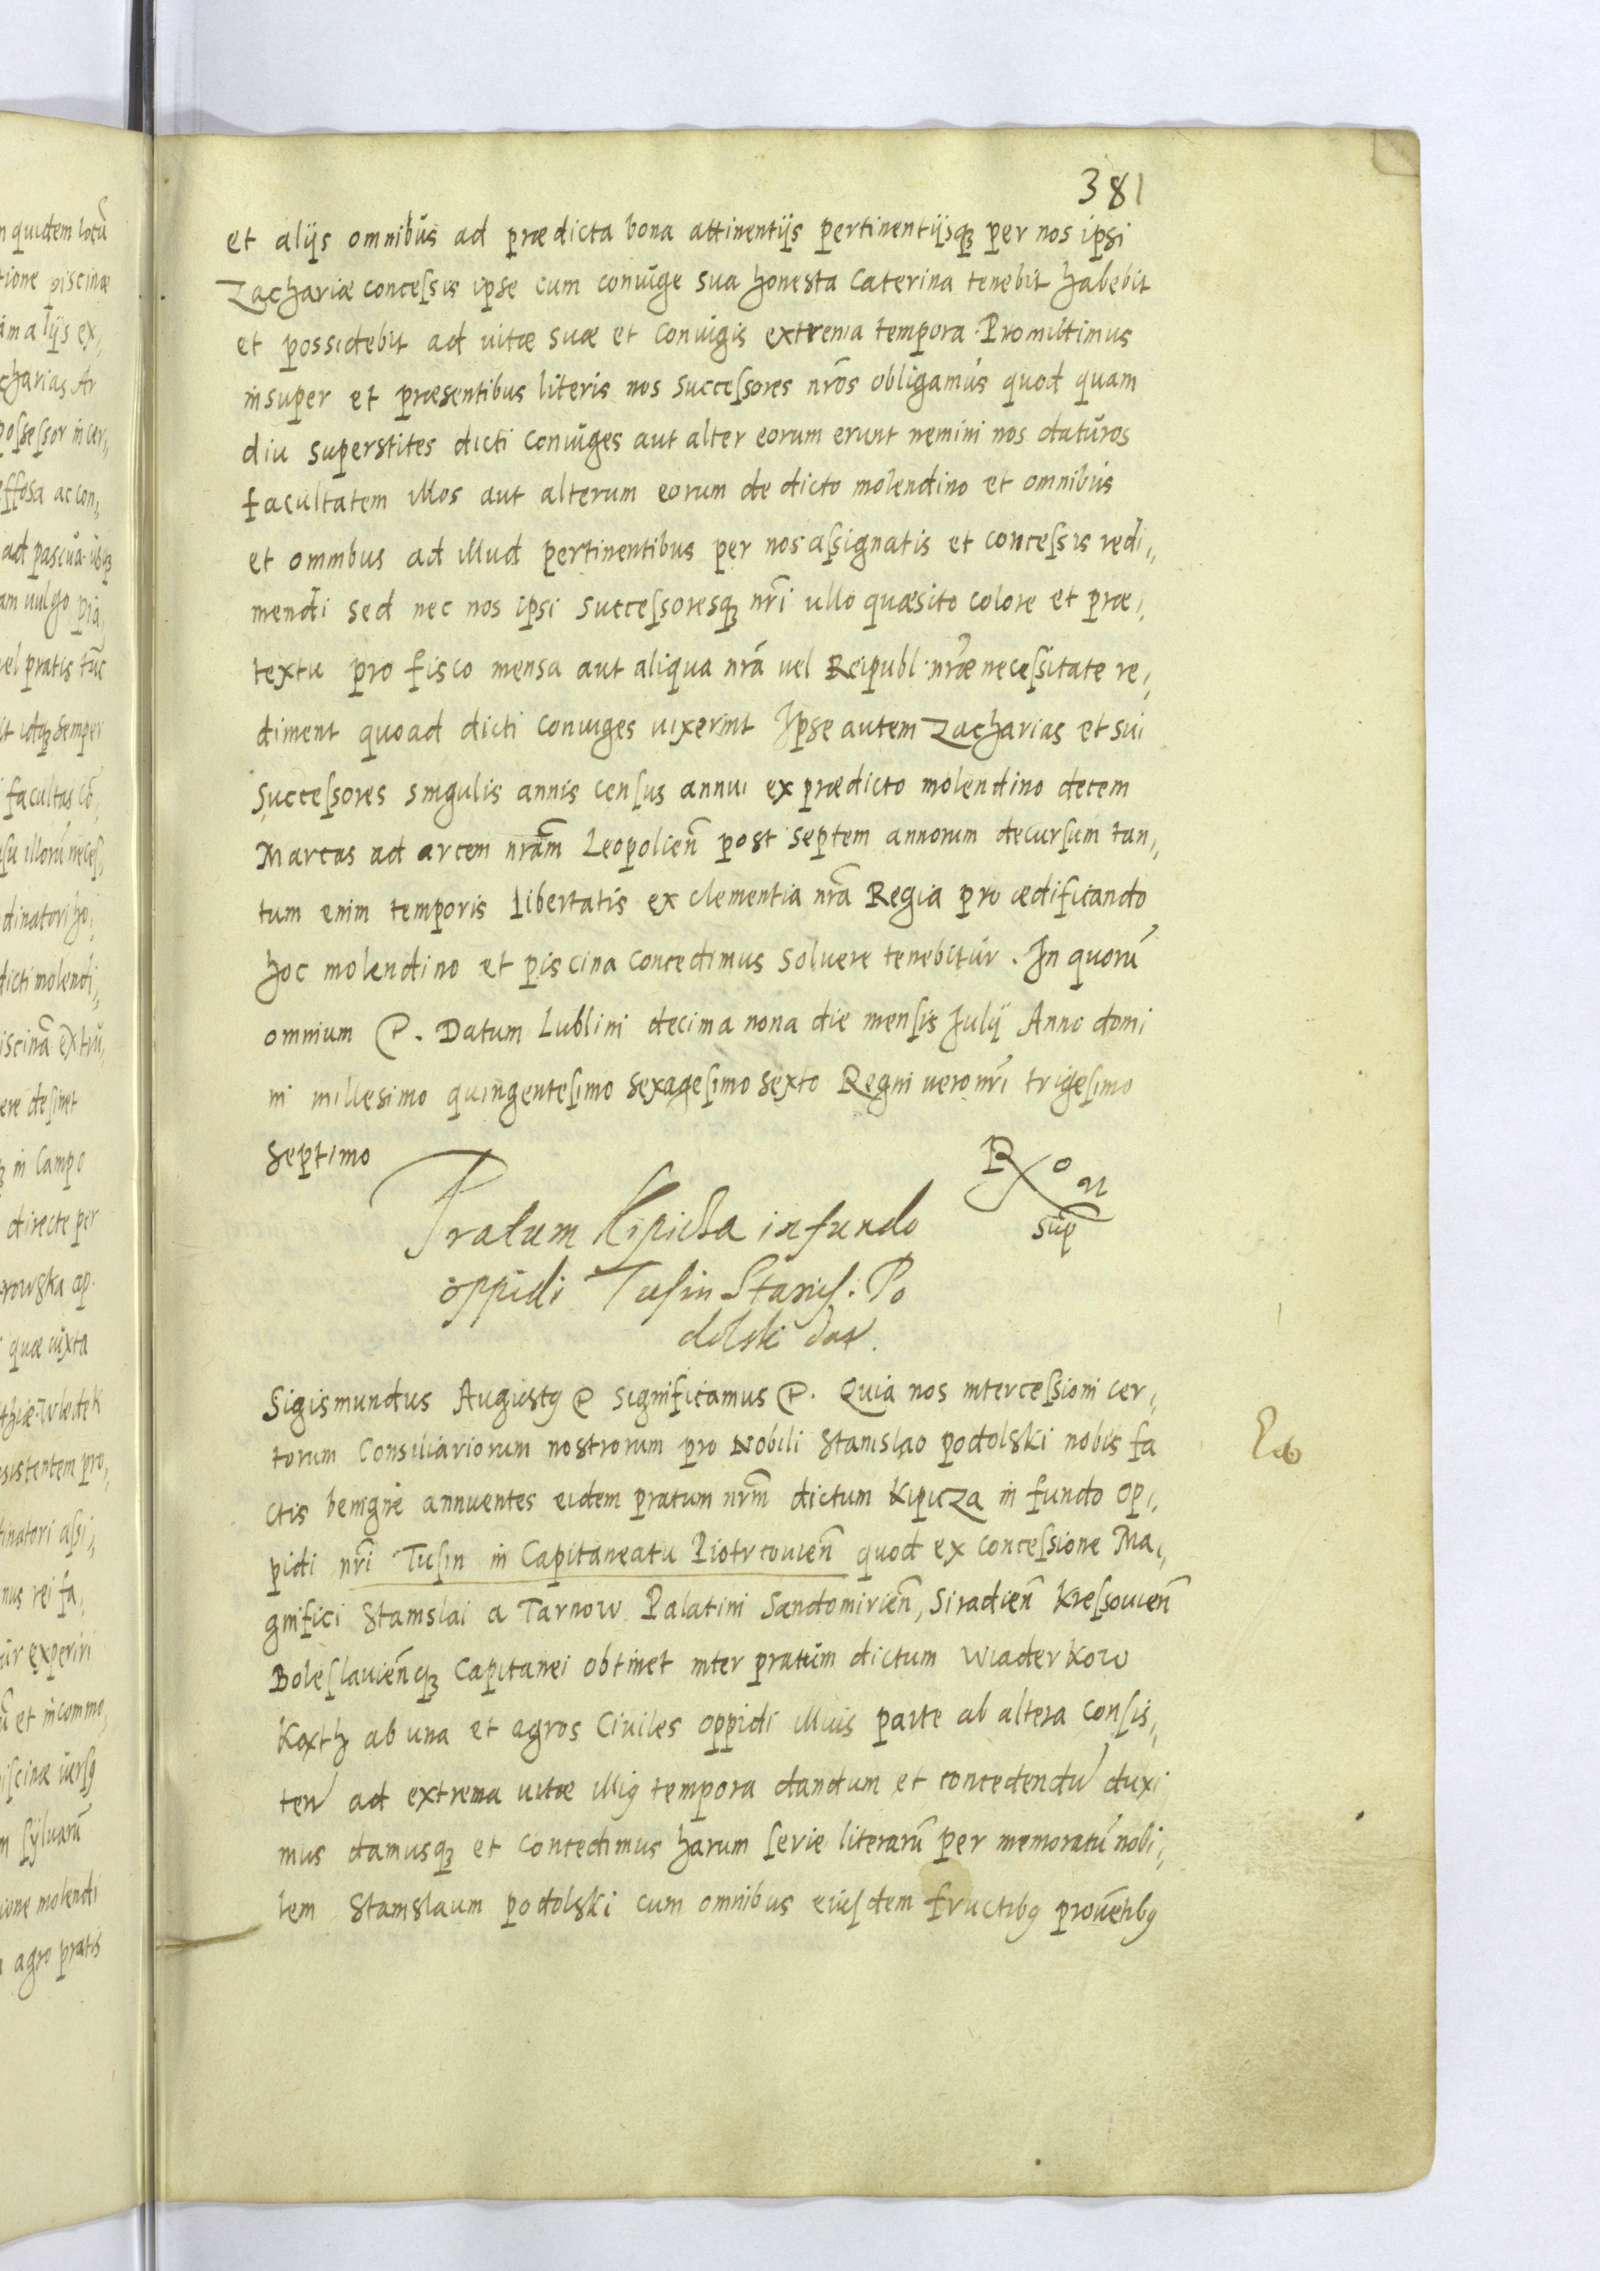 381
et alijs omnibus ad prædicta bona attinentijs pertinentijsq₃ per nos ipsi
Zachariæ conceſsis ipse cum coniuge sua honesta Caterina tenebit habebit
et possidebit ad uitæ suæ et coniugis extrema tempora. Promittimus
insuper et præsentibus literis nos succeſsores nr̃os obligamus quod quam
diu superstites dicti coniuges aut alter eorum erunt nemini nos daturos
facultatem illos aut alterum eorum de dicto molendino et omnibus
et omnibus ad illud pertinentibus per nos aſsignatis et conceſsis redi„
mendi sed nec nos ipsi succeſsoresq₃ nr̃i ullo quæsito colore et præ„
textu pro fisco mensa aut aliqua nr̃a uel Reipubl. nr̃æ neceſsitate re„
diment quoad dicti coniuges uixerint Ipse autem Zacharias et sui
succeſsores singulis annis cenſus annui ex prædicto molendino decem
Marcas ad arcem nr̃am Leopolien̄ post septem annorum decurſum tan„
tum enim temporis libertatis ex clementia nr̃a Regia pro ædificando
hoc molendino et piscina concedimus soluere tenebitur. In quorū
omnium &. Datum Lublini decima nona die menſis Julij Anno domi
ni millesimo quingenteſimo sexageſimo sexto Regni uero nr̃i trigeſimo
septimo
Pratum Kipicza in fundo
oppidi Tuſin Stanisl: Po
dolski dat.
R o n
sup
Sigismundus Auguſtꝯ & significamus &. Quia nos interceſsioni cer„
torum Consiliariorum nostrorum pro Nobili Stanislao podolski nobis fa
ctis benigne annuentes eidem pratum nr̃m dictum Kipicza in fundo op„
pidi nr̃i Tuſin in Capitaneatu Piotrcouien̄ quod ex conceſsione Ma„
gnifici Stanislai a Tarnow Palatini Sandomirien̄, Siradien̄ Kreſsouien̄
Boleſlauien̄q₃ Capitanei obtinet inter pratum dictum Wiaderkow
Kaxth ab una et agros Ciuiles oppidi illius parte ab altera conſis„
ten̄ ad extrema uitæ illiꝯ tempora dandum et concedendū duxi
mus damusq₃ et concedimus harum ſerie literarū per memoratū nobi„
lem Stanislaum podolski cum omnibus eiuſdem fructibꝯ prouētibꝯ